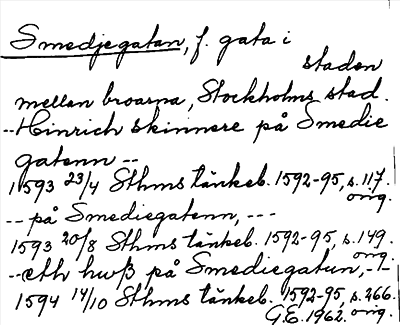 Smedjegatan, f. gata i
staden
mellan broarna, Stockholms stad.
--Hinrich skinnere på Smedie
gatenn --
1593 23/4 Sthms tänkeb. 1592-95, s. 117.
orig.
-- på Smediegatenn, ---
1593 20/8 Sthms tänkeb. 1592-95, s. 149.
orig.
--eth hwß på Smediegatun, --
1594 14/10 Sthms tänkeb. 1592-95, s. 266.
G.E. 1962. orig.